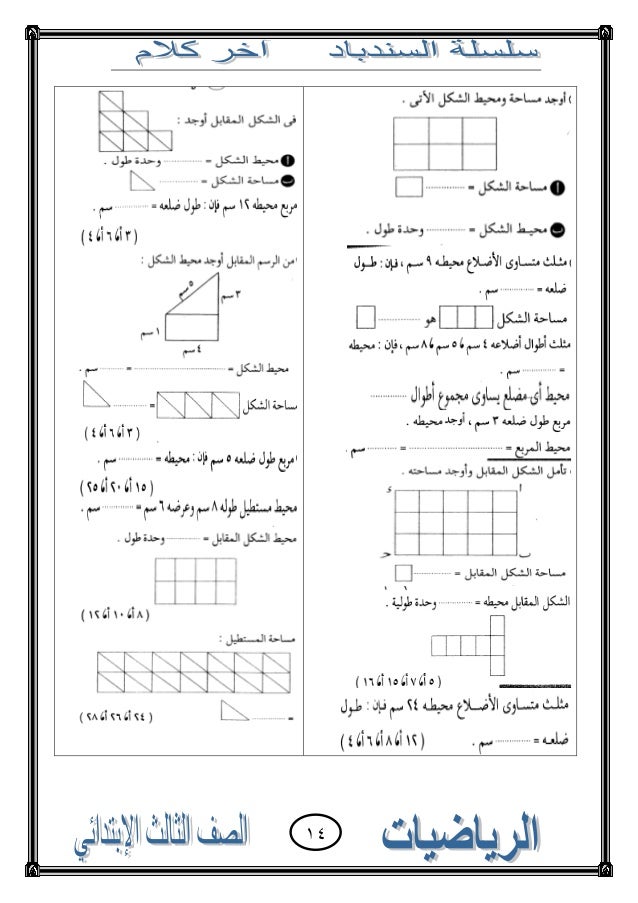 سلسلة السندباد اخر كلام
أوجد مساحة ومحيط الشكل الأتى .
أ مساحة الشكل = ............
ب محيط الشكل = ............ وحدة طول .
مثلث متساوى الأضلاع محيطه ٩ سم ، فإن : طول
ضلعه = ............ سم .
مساحة الشكل هو ............
مثلث أطوال أضلاعه ٤ سم ، ٥ سم ، ٨ سم ، فإن : محيطه
= ............ سم .
محيط أى مضلع يساوى مجموع أطوال ............
مربع طول ضلعه ٣ سم ، أوجد محيطه .
محيط المربع = ............ = ............ سم .
تأمل الشكل المقابل وأوجد مساحته .
ء أ
حـ ب
مساحة الشكل المقابل = ............
الشكل المقابل محيطه = ............ وحدة طولية .
( ٥ أ، ٧ أ، ١٥ أ، ١٦ )
مثلث متساوى الأضلاع محيطه ٢٤ سم فإن : طول
ضلعه = ............ سم . ( ١٢ أ، ٨ أ، ٦ أ، ٤ )
فى الشكل المقابل أوجد :
أ محيط الشكل = ............ وحدة طول .
ب مساحة الشكل = ............
مربع محيطه ١٢ سم فإن : طول ضلعه = ............ سم .
( ٣ أ، ٦ أ، ٤ )
من الرسم المقابل أوجد محيط الشكل :
٥ سم
٣ سم
١ سم
٤ سم
محيط الشكل = ............ = ............ سم .
ساحة الشكل = ............
( ٣ أ، ٦ أ، ٤ )
مربع طول ضلعه ٥ سم فإن : محيطه = ............ سم .
( ١٥ أ، ٢٠ أ، ٢٥ )
محيط مستطيل طوله ٨ سم وعرضه ٦ سم = ............ سم .
محيط الشكل المقابل = ............ وحدة طول .
( ٨ أ، ١٠ أ، ١٢ )
مساحة المستطيل :
= ............ ( ٢٤ أ، ٢٦ أ، ٢٨ )
الرياضيات ١٤ الصف الثالث الإبتدائي